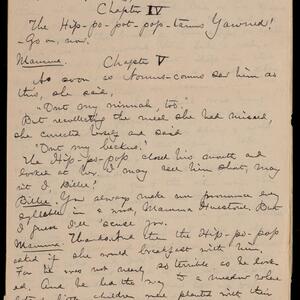 Chapter IV
The Hip-po-pot-pop-tamus Yawned!
- Go on, now.
Mamma. Chapter V
As soon as saw him as
this, she said,
"Ow my too."
But recollecting the meal she had missed,
she corrected herself and said
"Ow my
The Hip-po-pop closed his mouth and
looked at her. I may see him that, may
n't I, Billie?
Billie: You always make me pronounce every
syllable in a word, Mamma But
I guess I'll 'scuse you.
Mamma: then the Hip-po-pop
asked if she would breakfast with him,
For he was not nearly so terrible as he look-
ed. And he led the way to a meadow where
children were with their